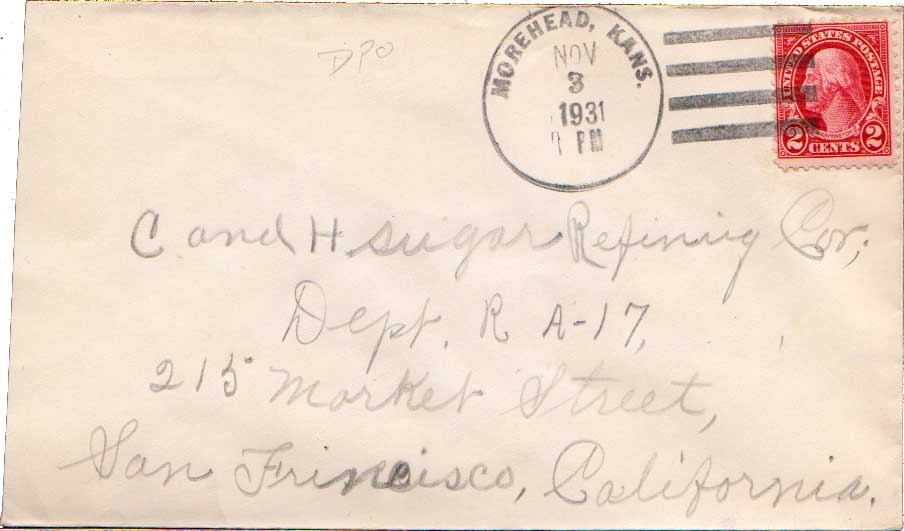 DPO
MOREHEAD, KANS.
NOV
3
1931
PM
UNITED STATES POSTAGE
WASHINGTON
2 CENTS 2
C and H sugar Refining Cor,
Dept. R A-17,
215 Market Street,
San Francisco, California.